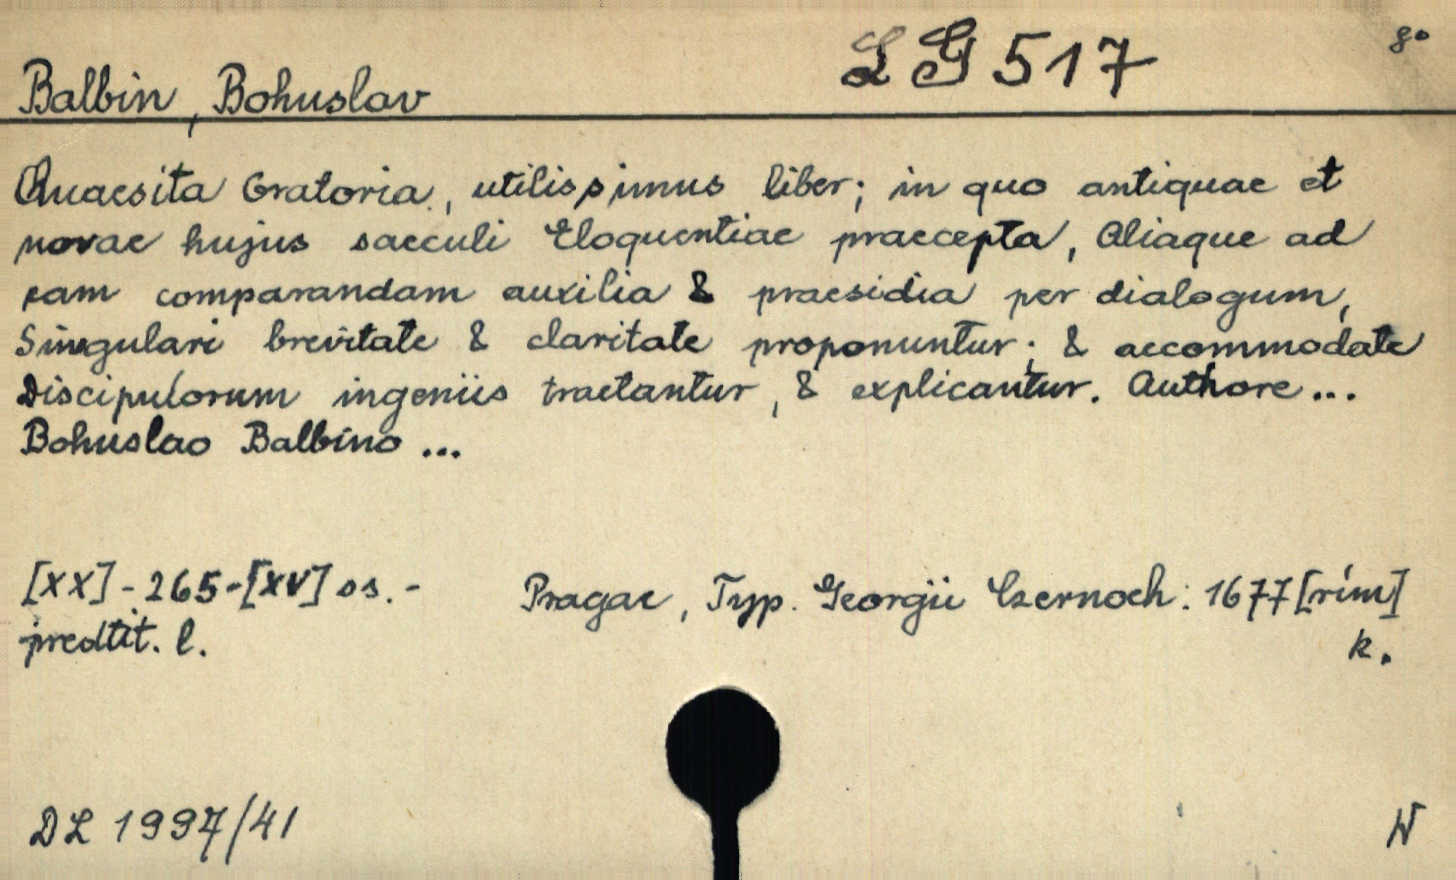 LG 517
8°
Balbin, Bohuslav
Quaesita Oratoria, utilissimus liber; in quo antiquae et
novae hujus saeculi Eloquentiae praecepta, Aliaque ad
eam comparandam auxilia & praesidia per dialogum,
Singulari brevitate & claritate proponuntur; & accommodate
Discipulorum ingeniis tractantur, & explicantur. Authore ...
Bohuslao Balbino ...
[XX] - 265 - [XV] ss. -
predtit. l.
Pragae, Typ. Georgii Czernoch: 1677 [rím]
k.
DL 1997/41
W